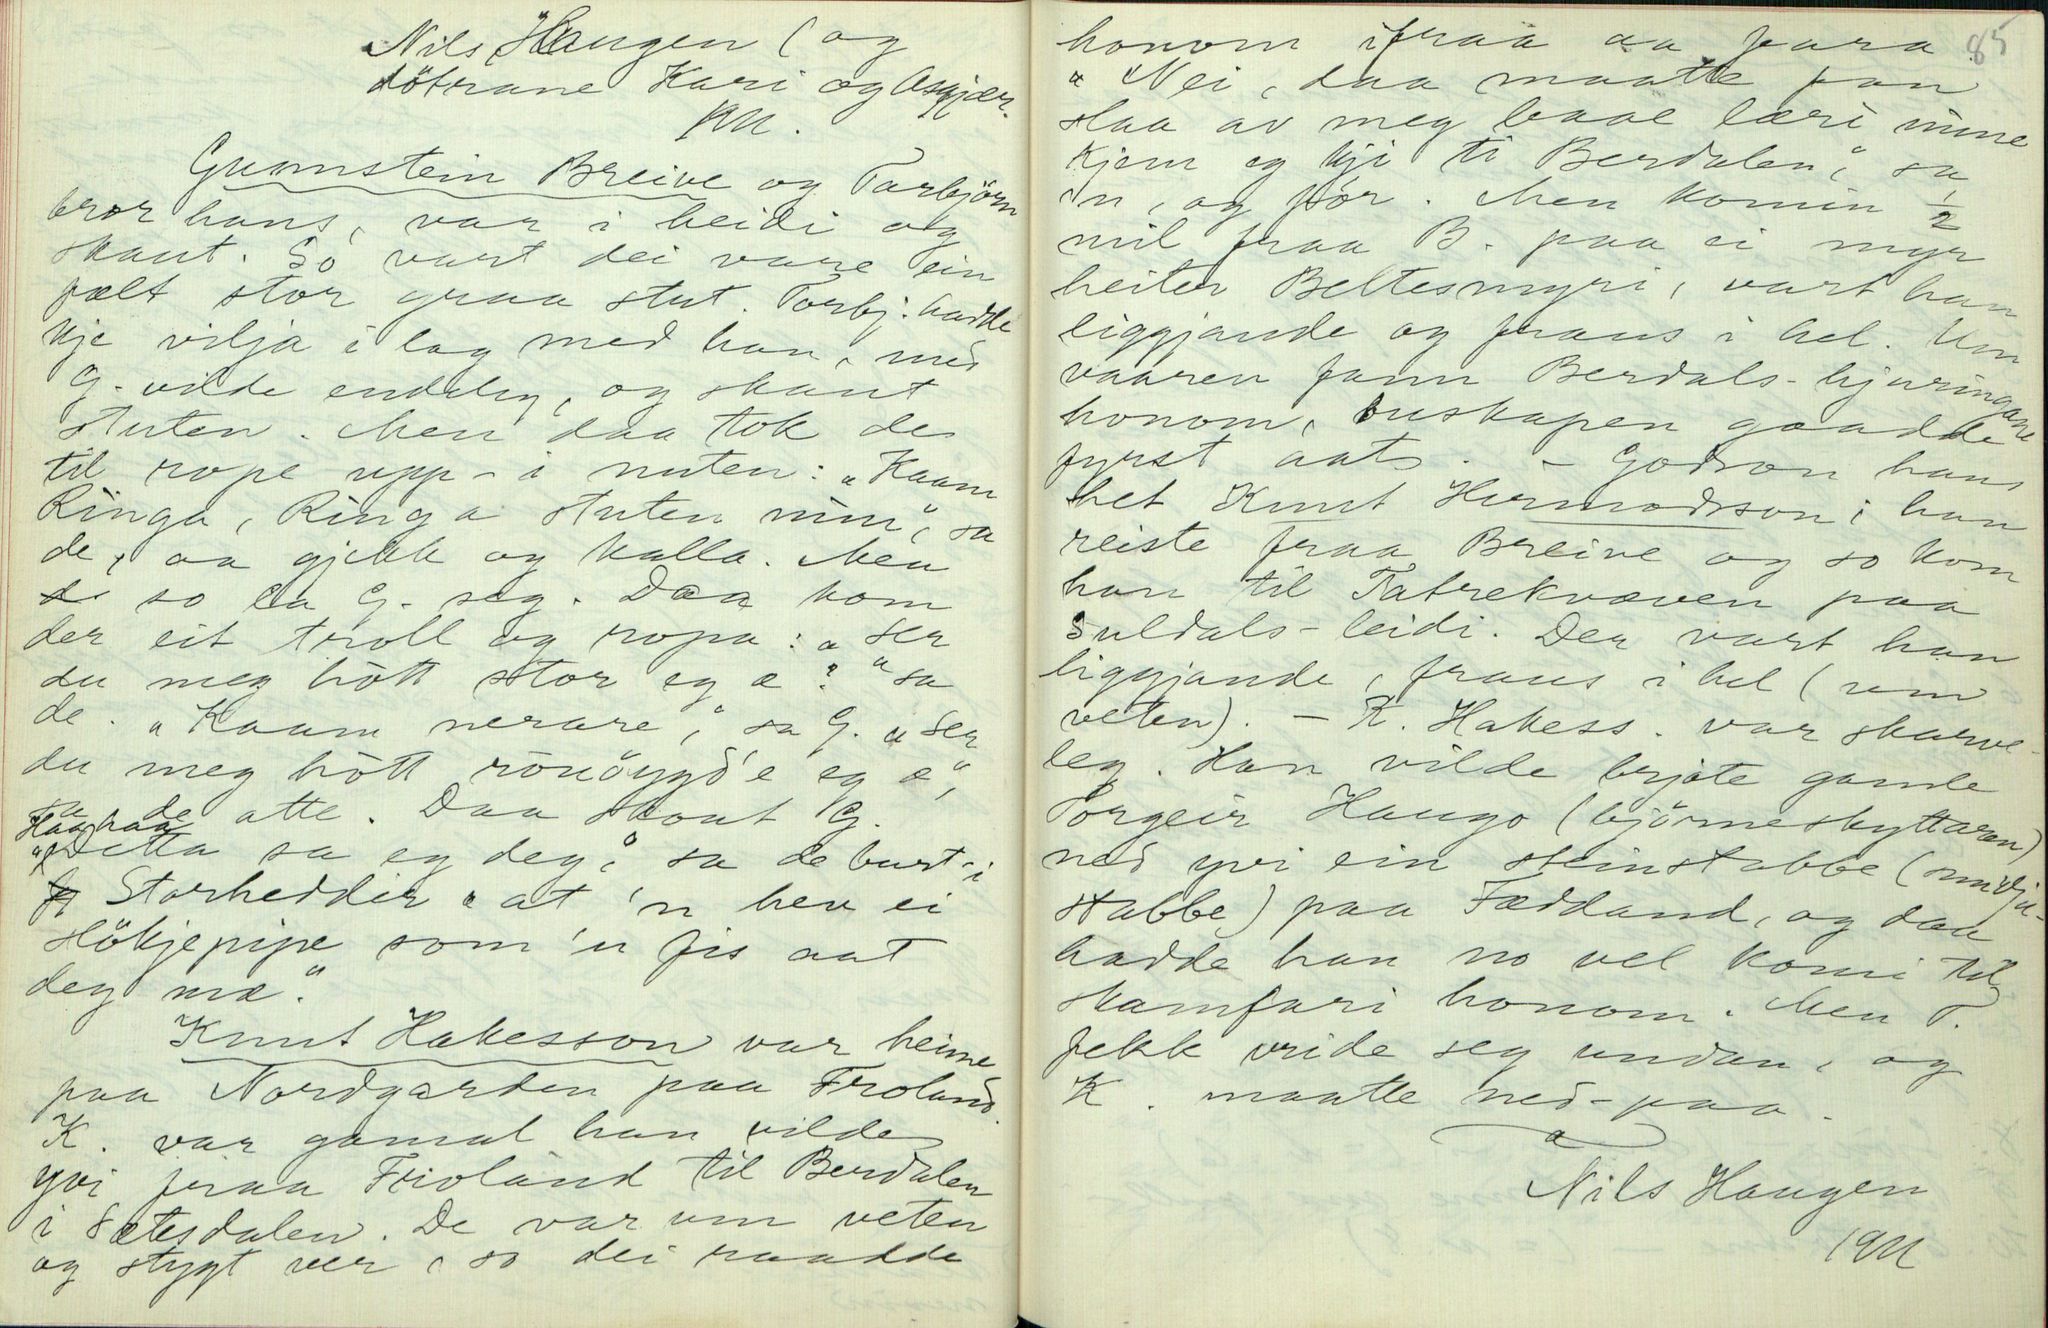 Nils Haugen (og
döttrane Kari og Asgjær.
1911.
Gunnstein Breive og Tarbjörn
bror hans, var i heidi og
skaut. So vart dei vare ein
fælt stor graa stut. Torbj: hadde
kje vilja i lag med han, med
G. vilde endeleg, og skaut
stuten. Men daa tok de
til rope upp-i nuten: "Kaam
Ringa, Ringa stuten min", sa
de, aa gjekk og kalla. Men
so la G. seg. Daa kom
der eit troll og ropa: "Ser
du meg hött stor eg æ?" sa
de. "Kaam nerare," sa G. "Ser
du meg hött rönöygd'e eg æ",
sa de atte. Daa skaut G.
Haa haa
"Ditta sa eg deg," sa de burt-i
Storhedder "at 'n hev ei
slökjepipe som 'n fis aat
deg mæ."
Knut Hakesson var heime
paa Nordgarden paa Froland.
K. var gamal han vilde
yvi fraa Froland til Berdalen
i Sætesdalen. De var um veten
og stygt ver, so dei raadde
85
honom ifraa aa fara
"Nei, daa maatte fan
slaa av meg baae læri mine
kjem eg kji ti Berdalen," sa
'n, og fór. Men komin 1/2
mil fraa B. paa ei myr
heiter Beltesmyri, vart han
liggjande og fraus i hel. Um
vaaren fann Berdals-hjuringane
honom, buskapen gaadde
fyrst aats. - Godson hans
het Knut Hermodsson; han
reiste fraa Breive og so kom
han til Tatrekvæven paa
Suldals-leidi. Der vart han
liggjande, fraus i hel (um
veten). - K. Hakess. var skarve-
leg. Han vilde brjote gamle
Torgeir Haugo (björneskyttaren)
ned yvi ein steinstabbe (smidju-
stabbe) paa Fæddand, og daa
hadde han no vel komi til
skamfari honom. Men T.
fekk vride seg undan, og
K. maatte ned-paa.
Nils Haugen
1911